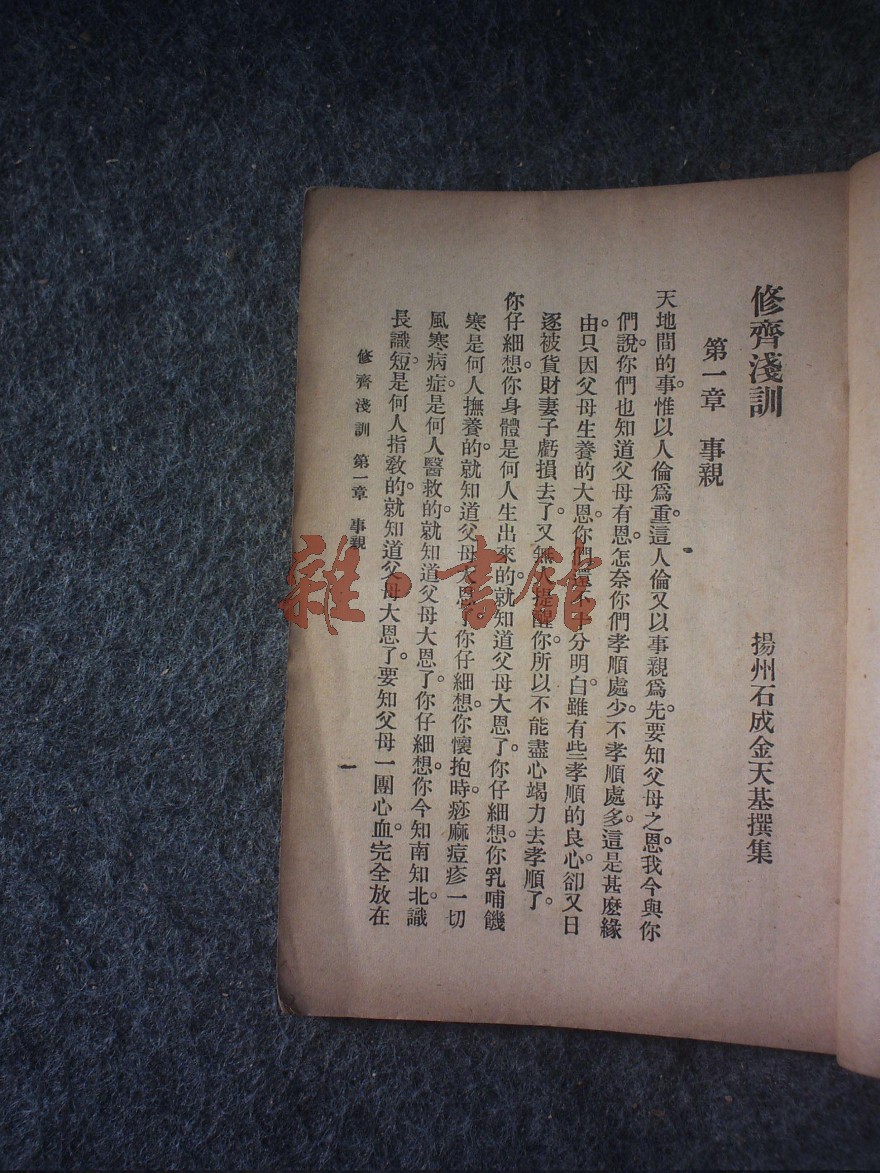 修齊淺訓
揚州石成金天基撰集
第一章 事親
天地間的事。惟以人倫爲重。這人倫又以事親爲先。要知父母之恩。我今與你
們說。你們也知道父母有恩。怎奈你們孝順處少。不孝順處多。這是甚麽緣
由。只因父母生養的大恩。你們還不十分明白。雖有些孝順的良心。卻又日
逐被貨財妻子虧損去了。又無人提醒你。所以不能盡心竭力去孝順了。
你仔細想。你身體是何人生出來的。就知道父母大恩了。你仔細想。你乳哺饑
寒。是何人撫養的。就知道父母大恩了。你仔細想。你懷抱時。痧麻痘疹一切
風寒病症。是何人醫救的。就知道父母大恩了。你仔細想。你今知南知北。識
長識短。是何人指教的。就知道父母大恩了。要知父母一團心血。完全放在
修齊淺訓 第一章 事親
一
雜·書館